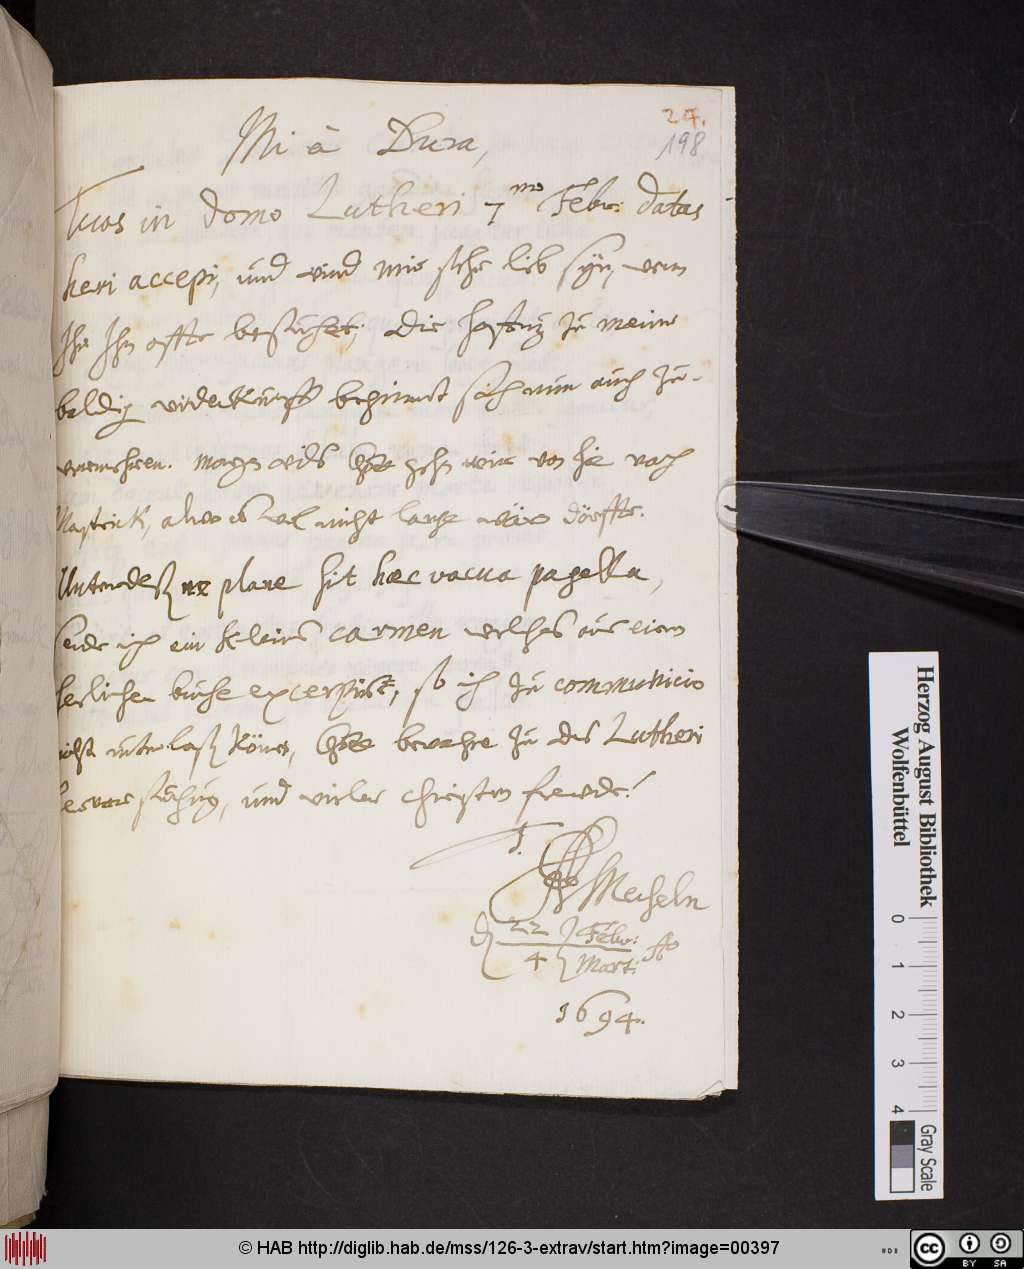 27.
198
Mi à Dura,
Tuas in domo Lutheri 7mo Febr: datas
heri accepi, und wird mir sehr lieb syn, wen
Ihr Ihn offte besuchet; die hofnug zu meiner
baldig widerkunfft beginnet sich nun auch zu-
vermehren. Morgen wils Gott gehn wir von hie nach
Mastrick, alwo es wol nicht lange wären dörffte.
Unterdeß ne plane sit haec vacua pagella,
sende ich ein kleines carmen welches aus einem
buche excerpiret, so ich zu communiciren
nicht unterlaßen können, Gott bewahre zu des Lutheri
und vieler Christen freude!
T.
Mecheln
d 22 Febr:
4 Mart:
1694.
Herzog August Bibliothek
Wolfenbüttel
0 1 2 3 4
Gray Scale
© HAB http://diglib.hab.de/mss/126-3-extrav/start.htm?image=00397
cc BY SA